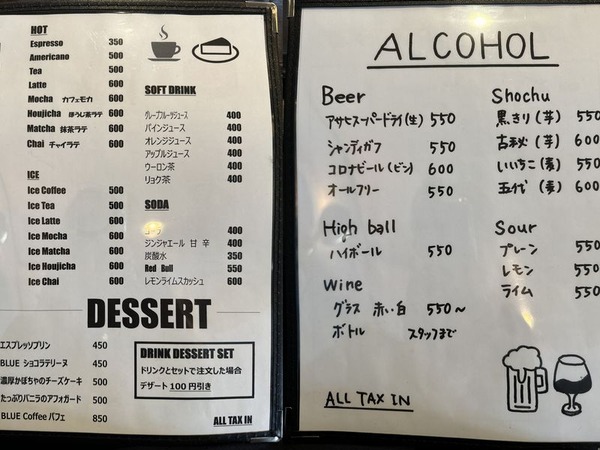 HOT
Espresso 350
Americano 500
Tea 500
Latte 600
Mocha カフェモカ 600
Houjicha ほうじ茶ラテ 600
Matcha 抹茶ラテ 600
Chai チャイラテ 600
ICE
Ice Coffee 500
Ice Tea 500
Ice Latte 600
Ice Mocha 600
Ice Matcha 600
Ice Houjicha 600
Ice Chai 600
SOFT DRINK
グレープフルーツジュース 400
パインジュース 400
オレンジジュース 400
アップルジュース 400
ウーロン茶 400
リョク茶 400
SODA
コーラ 400
ジンジャエール 甘 辛 400
炭酸水 350
Red Bull 550
レモンライムスカッシュ 600
DESSERT
エスプレッソプリン 450
BLUE ショコラテリーヌ 450
濃厚かぼちゃのチーズケーキ 500
たっぷりバニラのアフォガード 500
BLUE Coffee パフェ 850
DRINK DESSERT SET
ドリンクとセットで注文した場合
デザート 100 円引き
ALL TAX IN
ALCOHOL
Beer
アサヒスーパードライ(生) 550
シャンディガフ 550
コロナビール(ビン) 600
オールフリー 550
High ball
ハイボール 550
Wine
グラス 赤・白 550～
ボトル スタッフまで
Shochu
黒きり(芋) 550
古秘(芋) 600
いいちこ(麦) 550
五代(麦) 600
Sour
プレーン 550
レモン 550
ライム 550
ALL TAX IN